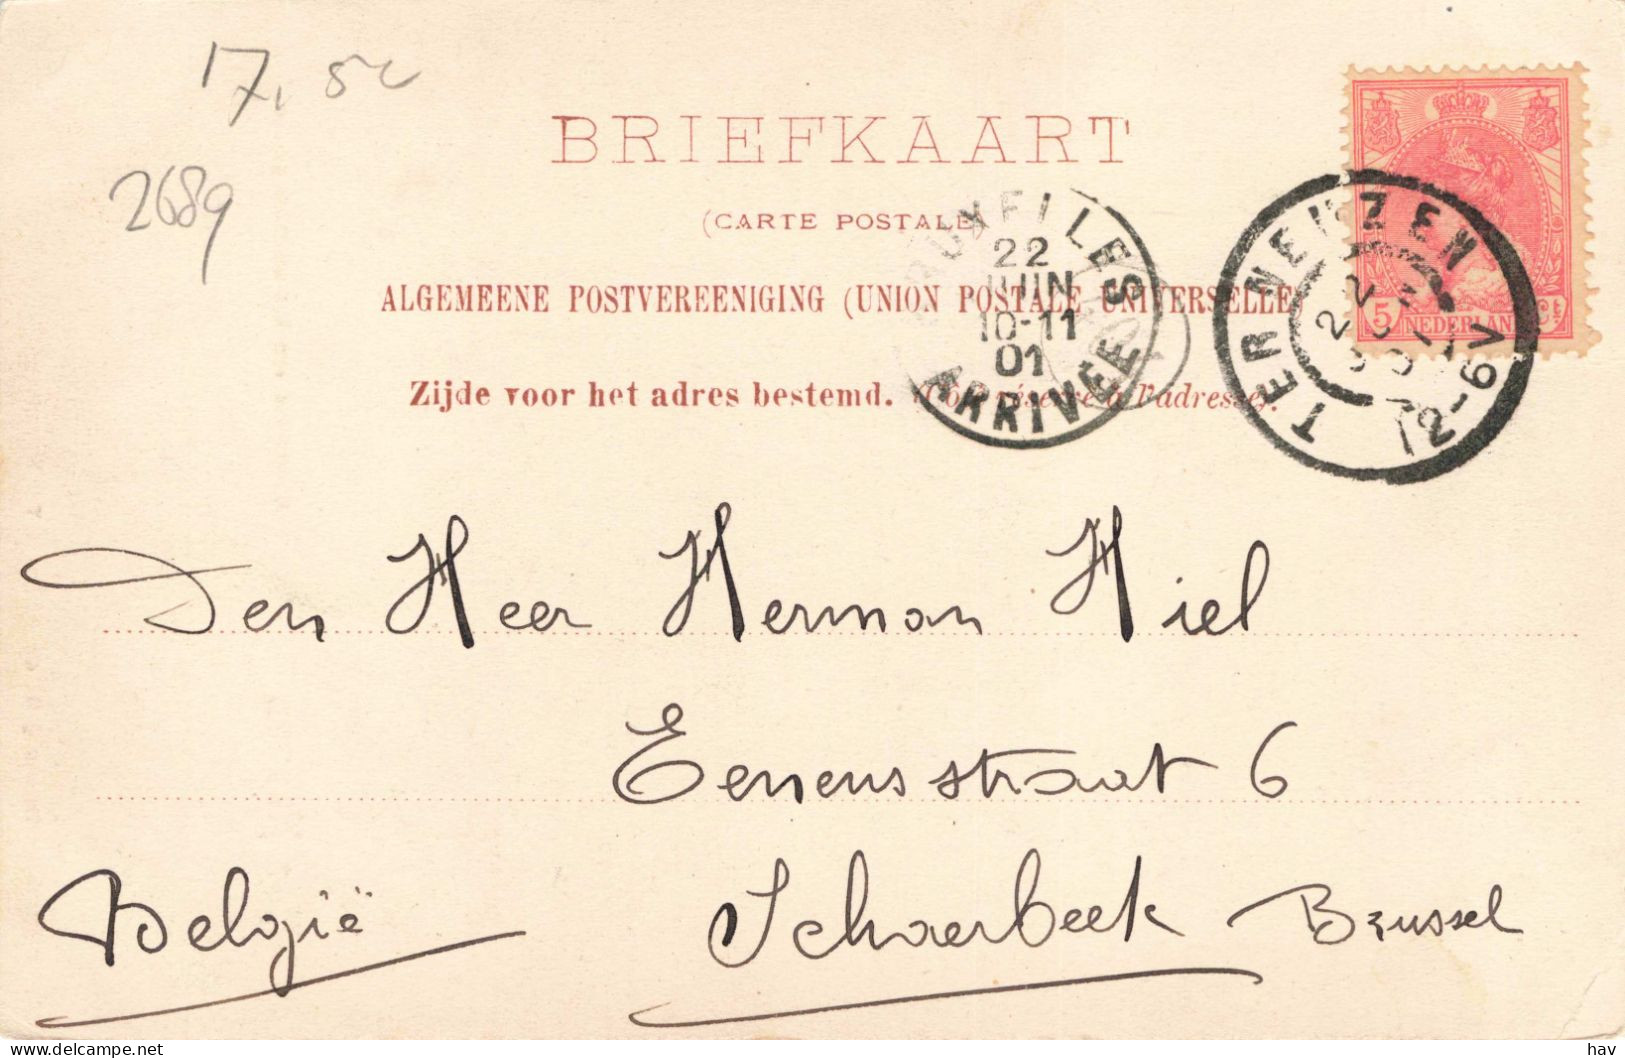 17, 50
2689
BRIEFKAART
(CARTE POSTALE)
ALGEMEENE POSTVEREENIGING (UNION POSTALE UNIVERSELLE)
Zijde voor het adres bestemd. (Côté réservé à l'adresse).
BRUXELLES
22
JUIN
10-11
01
ARRIVEE
TER NEUZEN
22
12-6V
5 NEDERLAND Ct
Den Heer Herman Hiel
Eenensstraat 6
België Schaerbeek Brussel
delcampe.net
hav